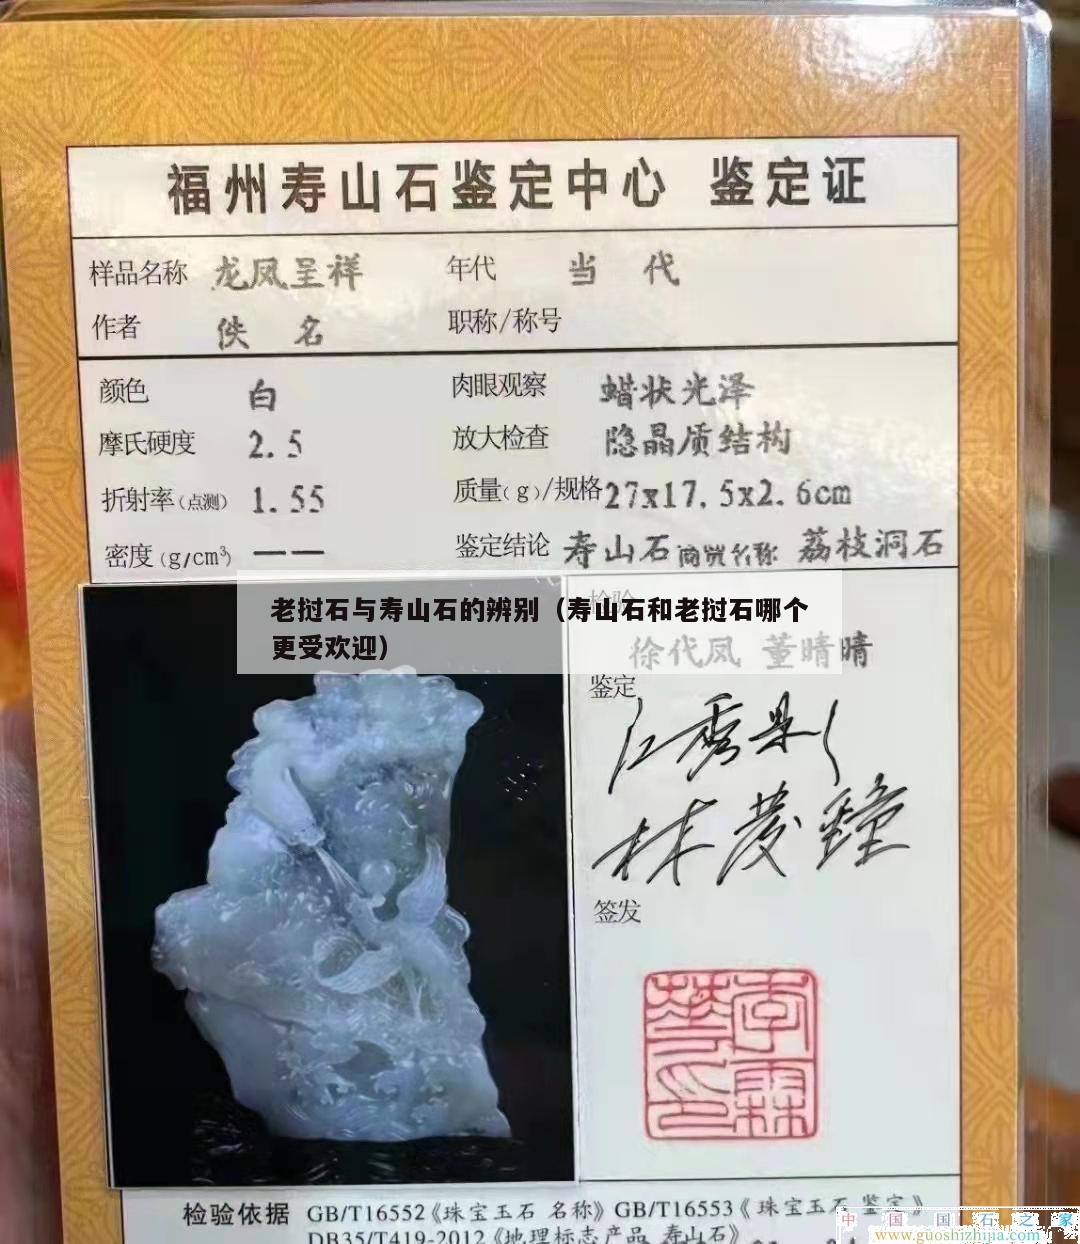 福州寿山石鉴定中心 鉴定证
样品名称 龙凤呈祥 年代 当 代
作者 佚 名 职称/称号
颜色 白 肉眼观察 蜡状光泽
摩氏硬度 2.5 放大检查 隐晶质结构
折射率(点测) 1.55 质量(g)/规格 27x17.5x2.6cm
密度(g/cm³) —— 鉴定结论 寿山石 商贸名称 荔枝洞石
老挝石与寿山石的辨别（寿山石和老挝石哪个
更受欢迎）
检验
徐代凤 董晴晴
鉴定
签发
检验依据 GB/T16552《珠宝玉石 名称》GB/T16553《珠宝玉石 鉴定》
DB35/T419-2012《地理标志产品 寿山石》
中国国石之家
www.guoshizhijia.com